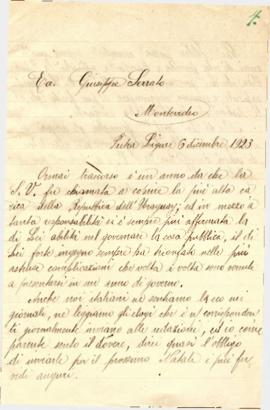 4.
Ea. Giuseppe Serrato
Montevideo
Pietra Ligure 6 dicembre 1923
Ormai trascorso è un anno da che la
S. V. fu chiamata a coprire la più alta ca
rica della Repubblica dell'Uruguay; ed in mezzo a
tanta responsabilità si è sempre più affermata la
di Lei abilità nel governare la cosa pubblica, il di
Lei forte ingegno sempre ha trionfato nelle più
complicazioni che volta a volta sono venute
a presentarsi in un anno di governo.
Anche noi italiani ne sentiamo la eco nei
giornali, ne leggiamo gli elogi che i corrispondenti
giornalmente inviano alle redazioni, ed io come
parente sento il dovere, direi quasi l'obbligo
di inviarle per il prossimo Natale i più fer
vidi auguri.